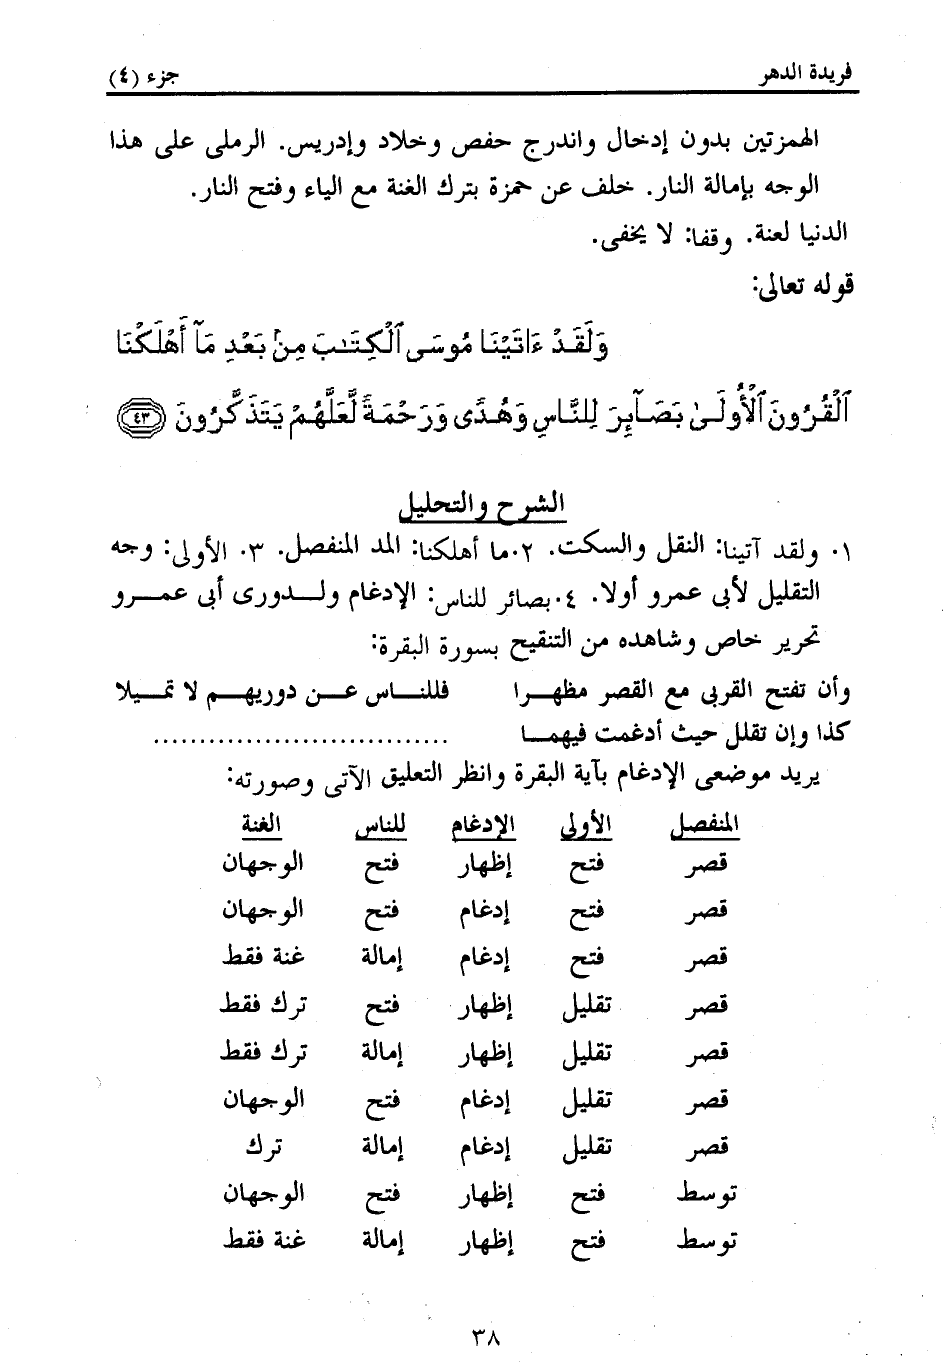 فريدة الدهر جزء (٤)
الهمزتين بدون إدخال واندرج حفص وخلاد وإدريس. الرملى على هذا
الوجه بإمالة النار. خلف عن حمزة بترك الغنة مع الياء وفتح النار.
الدنيا لعنة. وقفا: لا يخفى.
قوله تعالى:
وَلَقَدْ ءَاتَيْنَا مُوسَى ٱلْكِتَٰبَ مِنۢ بَعْدِ مَآ أَهْلَكْنَا
ٱلْقُرُونَ ٱلْأُولَىٰ بَصَآئِرَ لِلنَّاسِ وَهُدًى وَرَحْمَةً لَّعَلَّهُمْ يَتَذَكَّرُونَ ٤٣
الشرح والتحليل
١. ولقد آتينا: النقل والسكت. ٢.ما أهلكنا: المد المنفصل. ٣. الأولى: وجه
التقليل لأبى عمرو أولا. ٤.بصائر للناس: الإدغام ولدورى أبى عمرو
تحرير خاص وشاهده من التنقيح بسورة البقرة:
وأن تفتح القربى مع القصر مظهرا فللناس عن دوريهم لا تميلا
كذا وإن تقلل حيث أدغمت فيهما ................................
يريد موضعى الإدغام بآية البقرة وانظر التعليق الآتى وصورته:
المنفصل الأولى الإدغام للناس الغنة
قصر فتح إظهار فتح الوجهان
قصر فتح إدغام فتح الوجهان
قصر فتح إدغام إمالة غنة فقط
قصر تقليل إظهار فتح ترك فقط
قصر تقليل إظهار إمالة ترك فقط
قصر تقليل إدغام فتح الوجهان
قصر تقليل إدغام إمالة ترك
توسط فتح إظهار فتح الوجهان
توسط فتح إظهار إمالة غنة فقط
٣٨